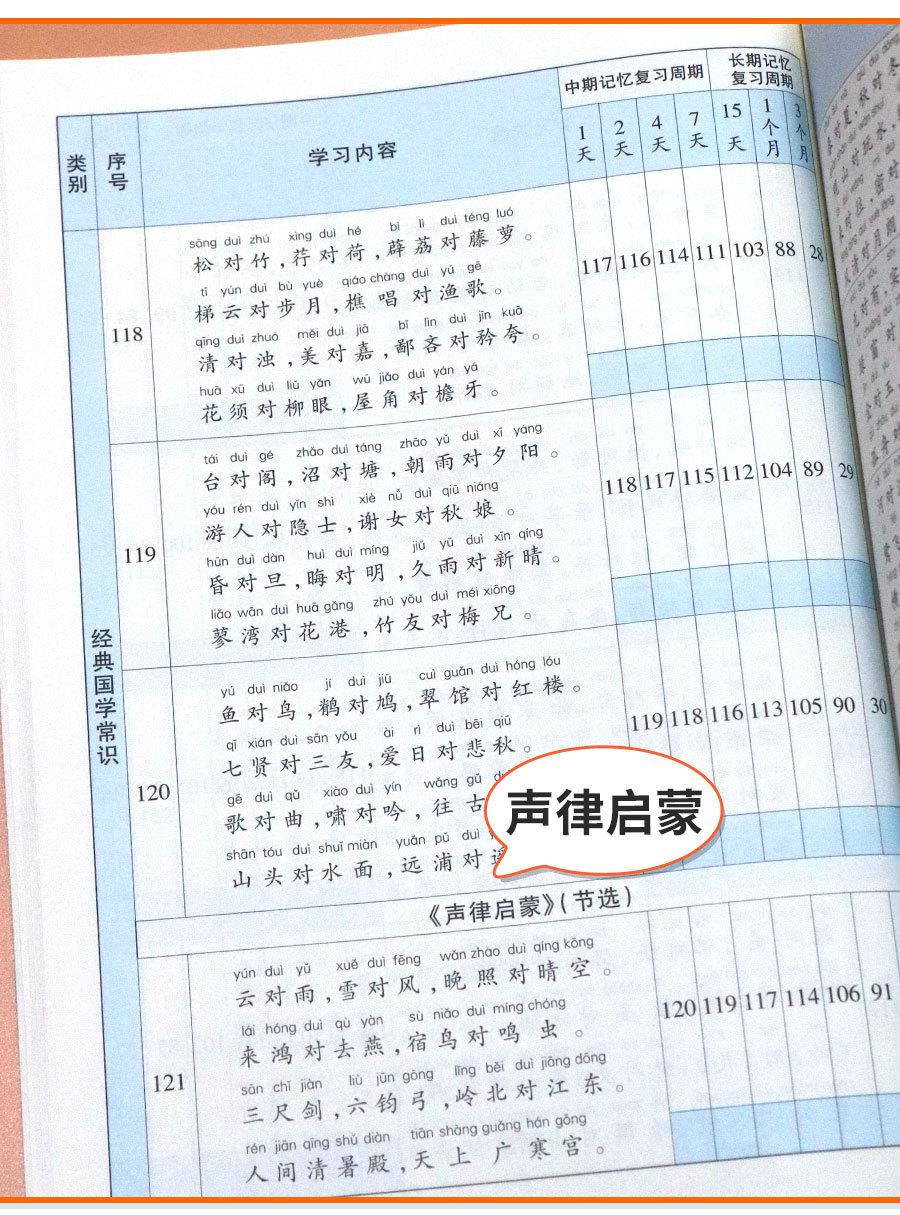 类别 序号 学习内容 中期记忆复习周期 长期记忆复习周期
1天 2天 4天 7天 15天 1个月 3个月
经典国学常识
118
sōng duì zhú xìng duì hé bì lì duì téng luó
松对竹,荇对荷,薜荔对藤萝。
tī yún duì bù yuè qiáo chàng duì yú gē
梯云对步月,樵唱对渔歌。
qīng duì zhuó měi duì jiā bǐ lìn duì jīn kuā
清对浊,美对嘉,鄙吝对矜夸。
huā xū duì liǔ yǎn wū jiǎo duì yán yá
花须对柳眼,屋角对檐牙。
117 116 114 111 103 88 28
119
tái duì gé zhǎo duì táng zhāo yǔ duì xī yáng
台对阁,沼对塘,朝雨对夕阳。
yóu rén duì yǐn shì xiè nǚ duì qiū niáng
游人对隐士,谢女对秋娘。
hūn duì dàn huì duì míng jiǔ yǔ duì xīn qíng
昏对旦,晦对明,久雨对新晴。
liǎo wān duì huā gǎng zhú yǒu duì méi xiōng
蓼湾对花港,竹友对梅兄。
118 117 115 112 104 89 29
120
yú duì niǎo jí duì jiū cuì guǎn duì hóng lóu
鱼对鸟,鹡对鸠,翠馆对红楼。
qī xián duì sān yǒu ài rì duì bēi qiū
七贤对三友,爱日对悲秋。
gē duì qǔ xiào duì yín wǎng gǔ
歌对曲,啸对吟,往古
shān tóu duì shuǐ miàn yuǎn pǔ duì
山头对水面,远浦对
119 118 116 113 105 90 30
声律启蒙
《声律启蒙》(节选)
121
yún duì yǔ xuě duì fēng wǎn zhào duì qíng kōng
云对雨,雪对风,晚照对晴空。
lái hóng duì qù yàn sù niǎo duì míng chóng
来鸿对去燕,宿鸟对鸣虫。
sān chǐ jiàn liù jūn gōng lǐng běi duì jiāng dōng
三尺剑,六钧弓,岭北对江东。
rén jiān qīng shǔ diàn tiān shàng guǎng hán gōng
人间清暑殿,天上广寒宫。
120 119 117 114 106 91